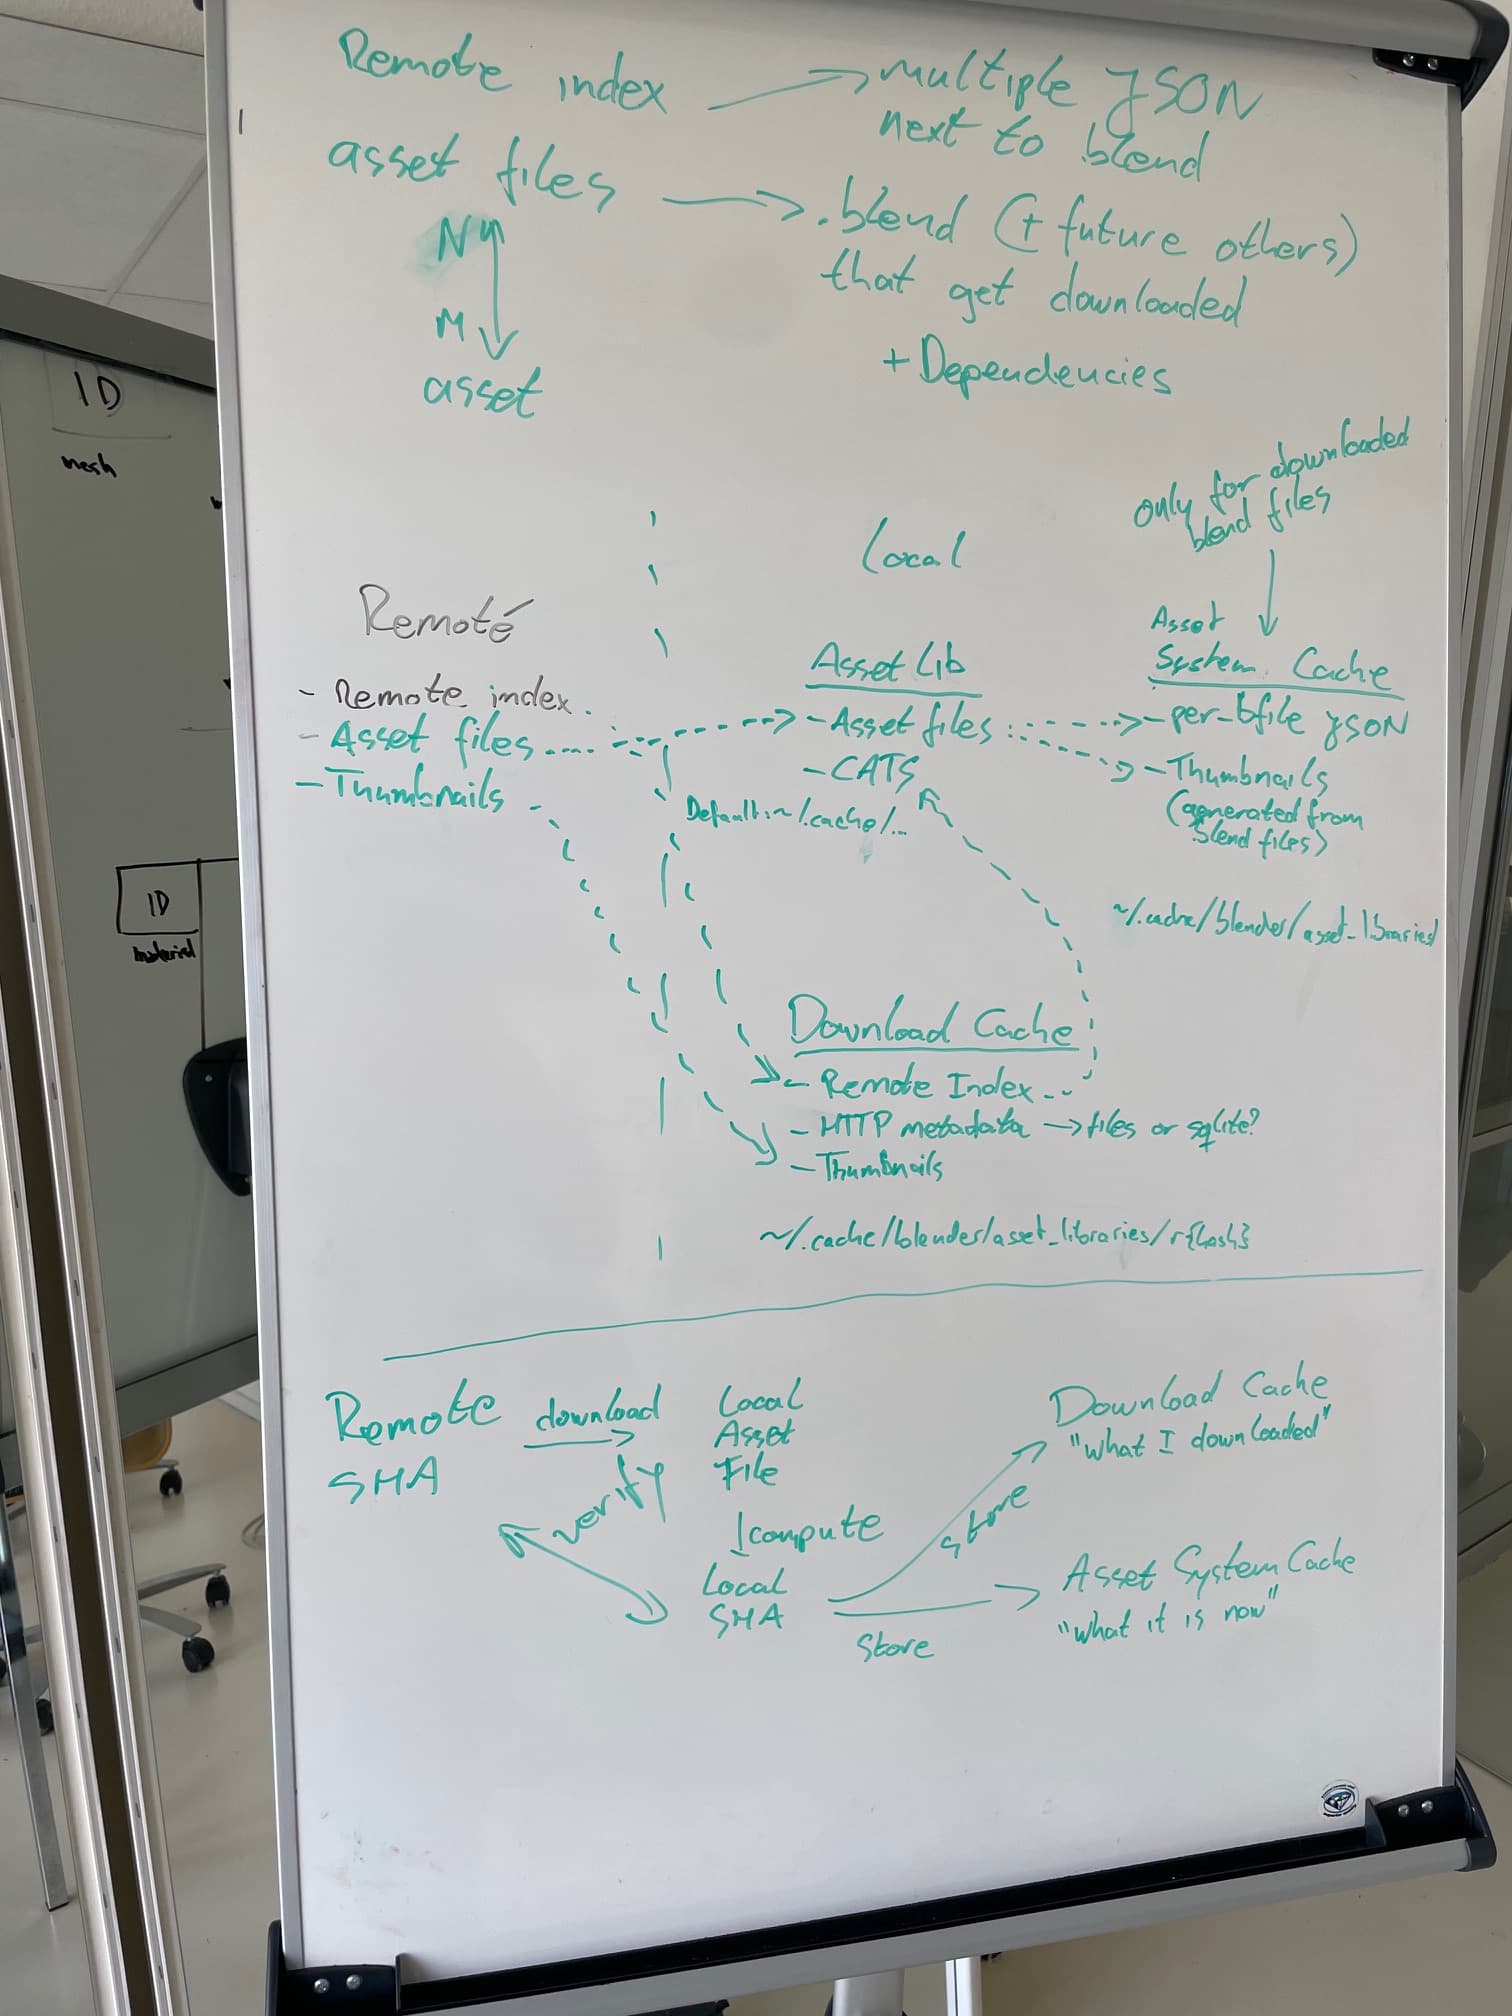 Remote index → multiple JSON
next to blend
asset files → .blend (+ future others)
that get downloaded
+ Dependencies
N
M
asset
only for downloaded
blend files
Local
Remote
- Remote index
- Asset files
- Thumbnails
Asset Lib
- Asset files
- CATS
Default: ~/.cache/...
Asset
System Cache
- per-bfile JSON
- Thumbnails
(generated from
blend files)
~/.cache/blender/asset_libraries/
Download Cache
- Remote Index
- HTTP metadata → files or sqlite?
- Thumbnails
~/.cache/blender/asset_libraries/r{hash}
Remote
SHA
download
verify
Local
Asset
File
compute
Local
SHA
store
Store
Download Cache
"what I downloaded"
Asset System Cache
"what it is now"
ID
mesh
ID
material